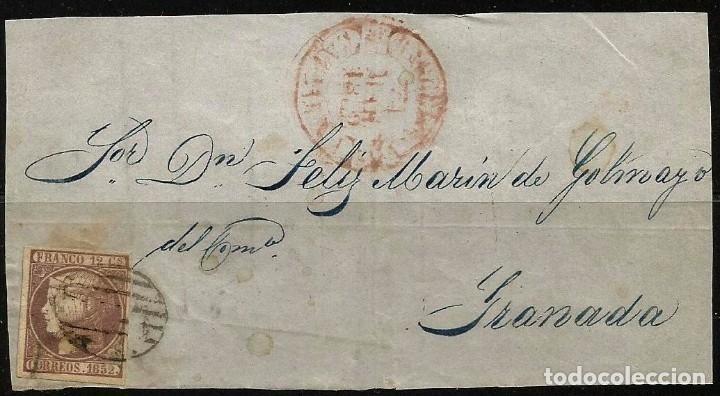 Sor. Dn. Feliz Marin de Golmayo
del Como.
Granada
FRANCO 12 CS
CORREOS. 1852.
todocoleccion